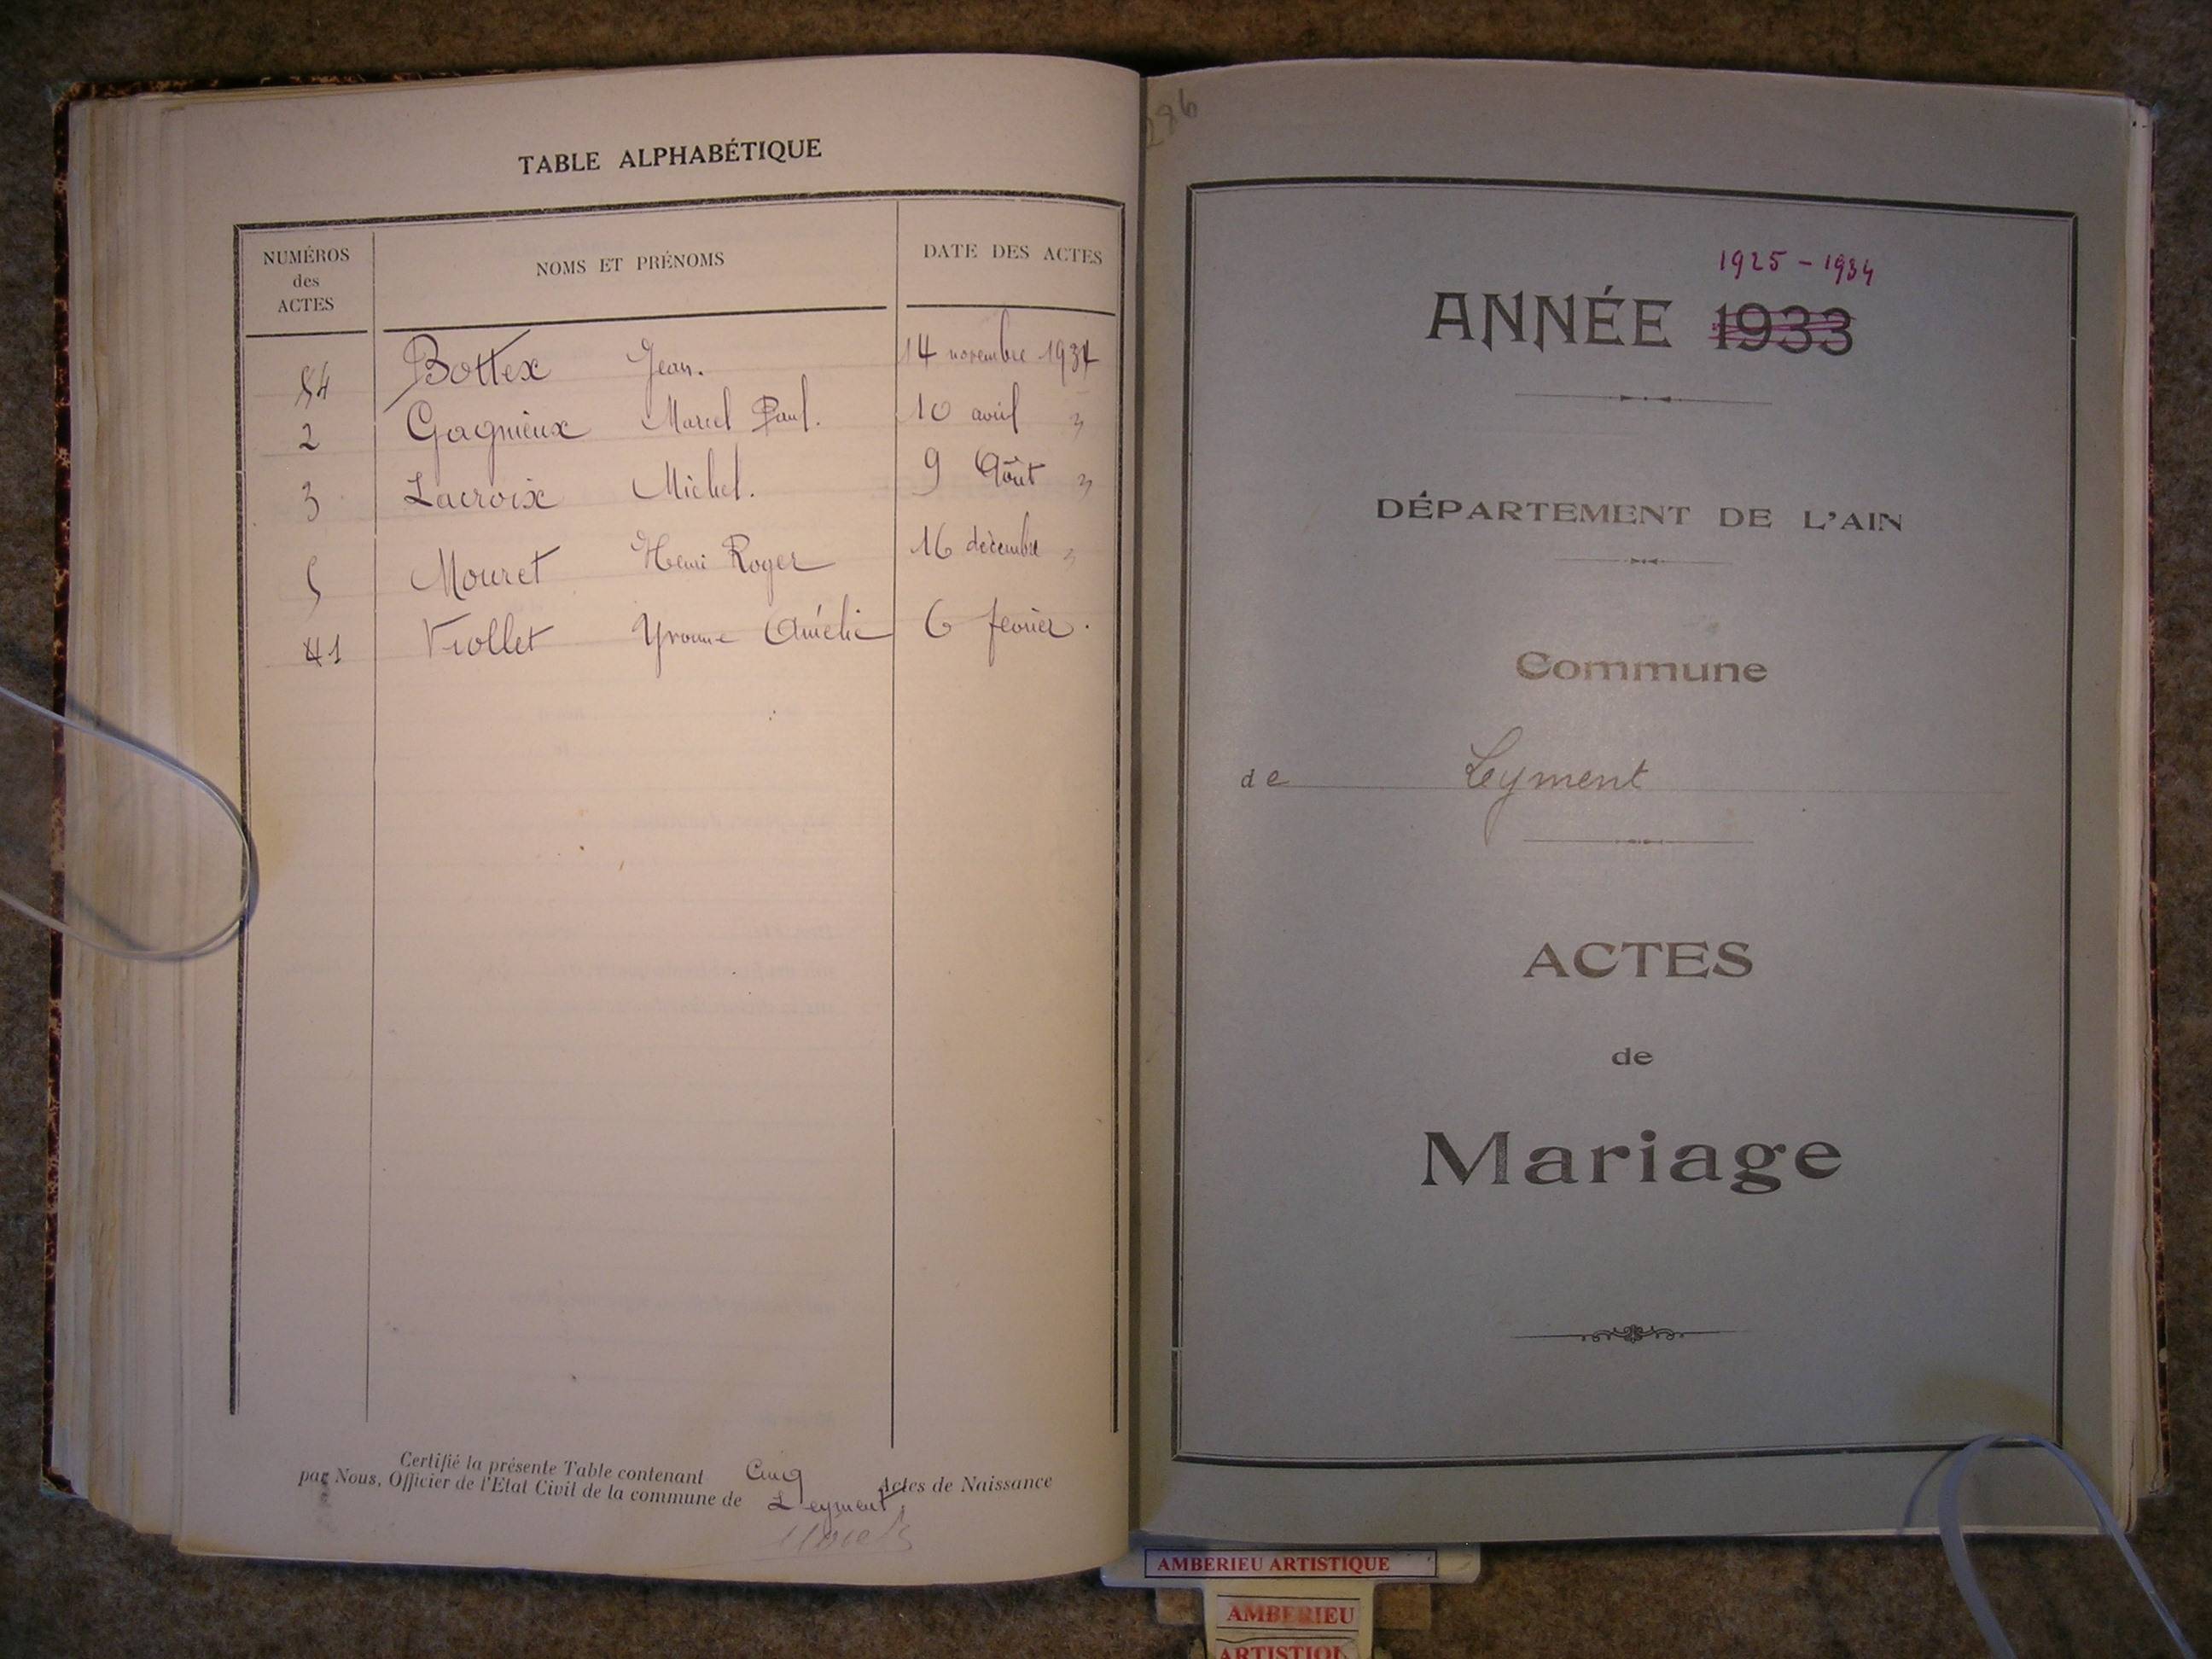 TABLE ALPHABÉTIQUE
NUMÉROS des ACTES NOMS ET PRÉNOMS DATE DES ACTES
4 Bottex Jean. 14 novembre 1934
2 Gagnieux Marcel Paul. 10 avril
3 Lacroix Michel. 9 Août
5 Mouret Henri Roger 16 décembre
1 Viollet Yvonne Amélie 6 fevrier.
Certifié la présente Table contenant Cinq Actes de Naissance
par Nous, Officier de l'Etat Civil de la commune de Leyment,
286
1925 - 1934
ANNÉE 1933
DÉPARTEMENT DE L'AIN
Commune
de Leyment
ACTES
de
Mariage
AMBERIEU ARTISTIQUE
AMBERIEU